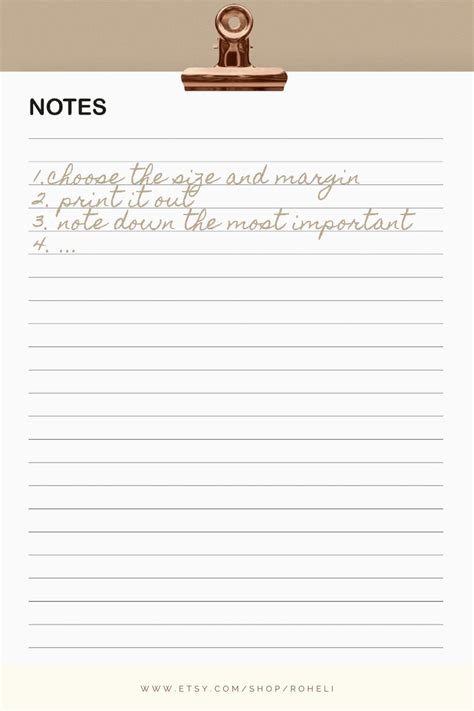 NOTES
1. choose the size and margin
2. print it out
3. note down the most important
4. ...
WWW.ETSY.COM/SHOP/ROHELI